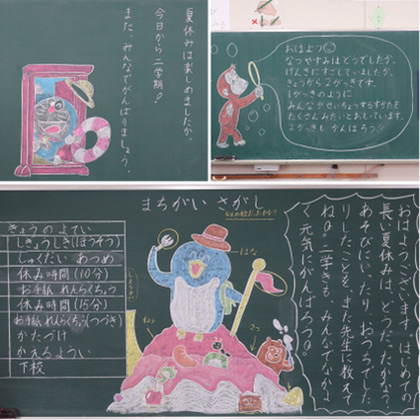 夏休みは楽しめましたか。
今日から二学期♪
また、みんなでがんばりましょう。
おはよう
なつやすみはどうでしたか。
げんきにすごしていましたか。
きょうから2がっきです。
1がっきのように
みんながせいちょうするすがたを
たくさんみたいとおもっています。
2がっきもがんばろう
まちがいさがし
きょうのよてい
しぎょうしき(ほうそう)
しゅくだい あつめ
休み時間(10分)
お手紙 れんらくちょう
休み時間(15分)
お手紙 れんらくちょう(つづき)
かたづけ
かえるようい
下校
はな
おはようございます。はじめての
長い夏休みは、どうでしたか。
あそびにいったり、おうちでした
りしたことを、また先生に教えて
ね。二学きも、みんなでなかよ
く元気にがんばろう。